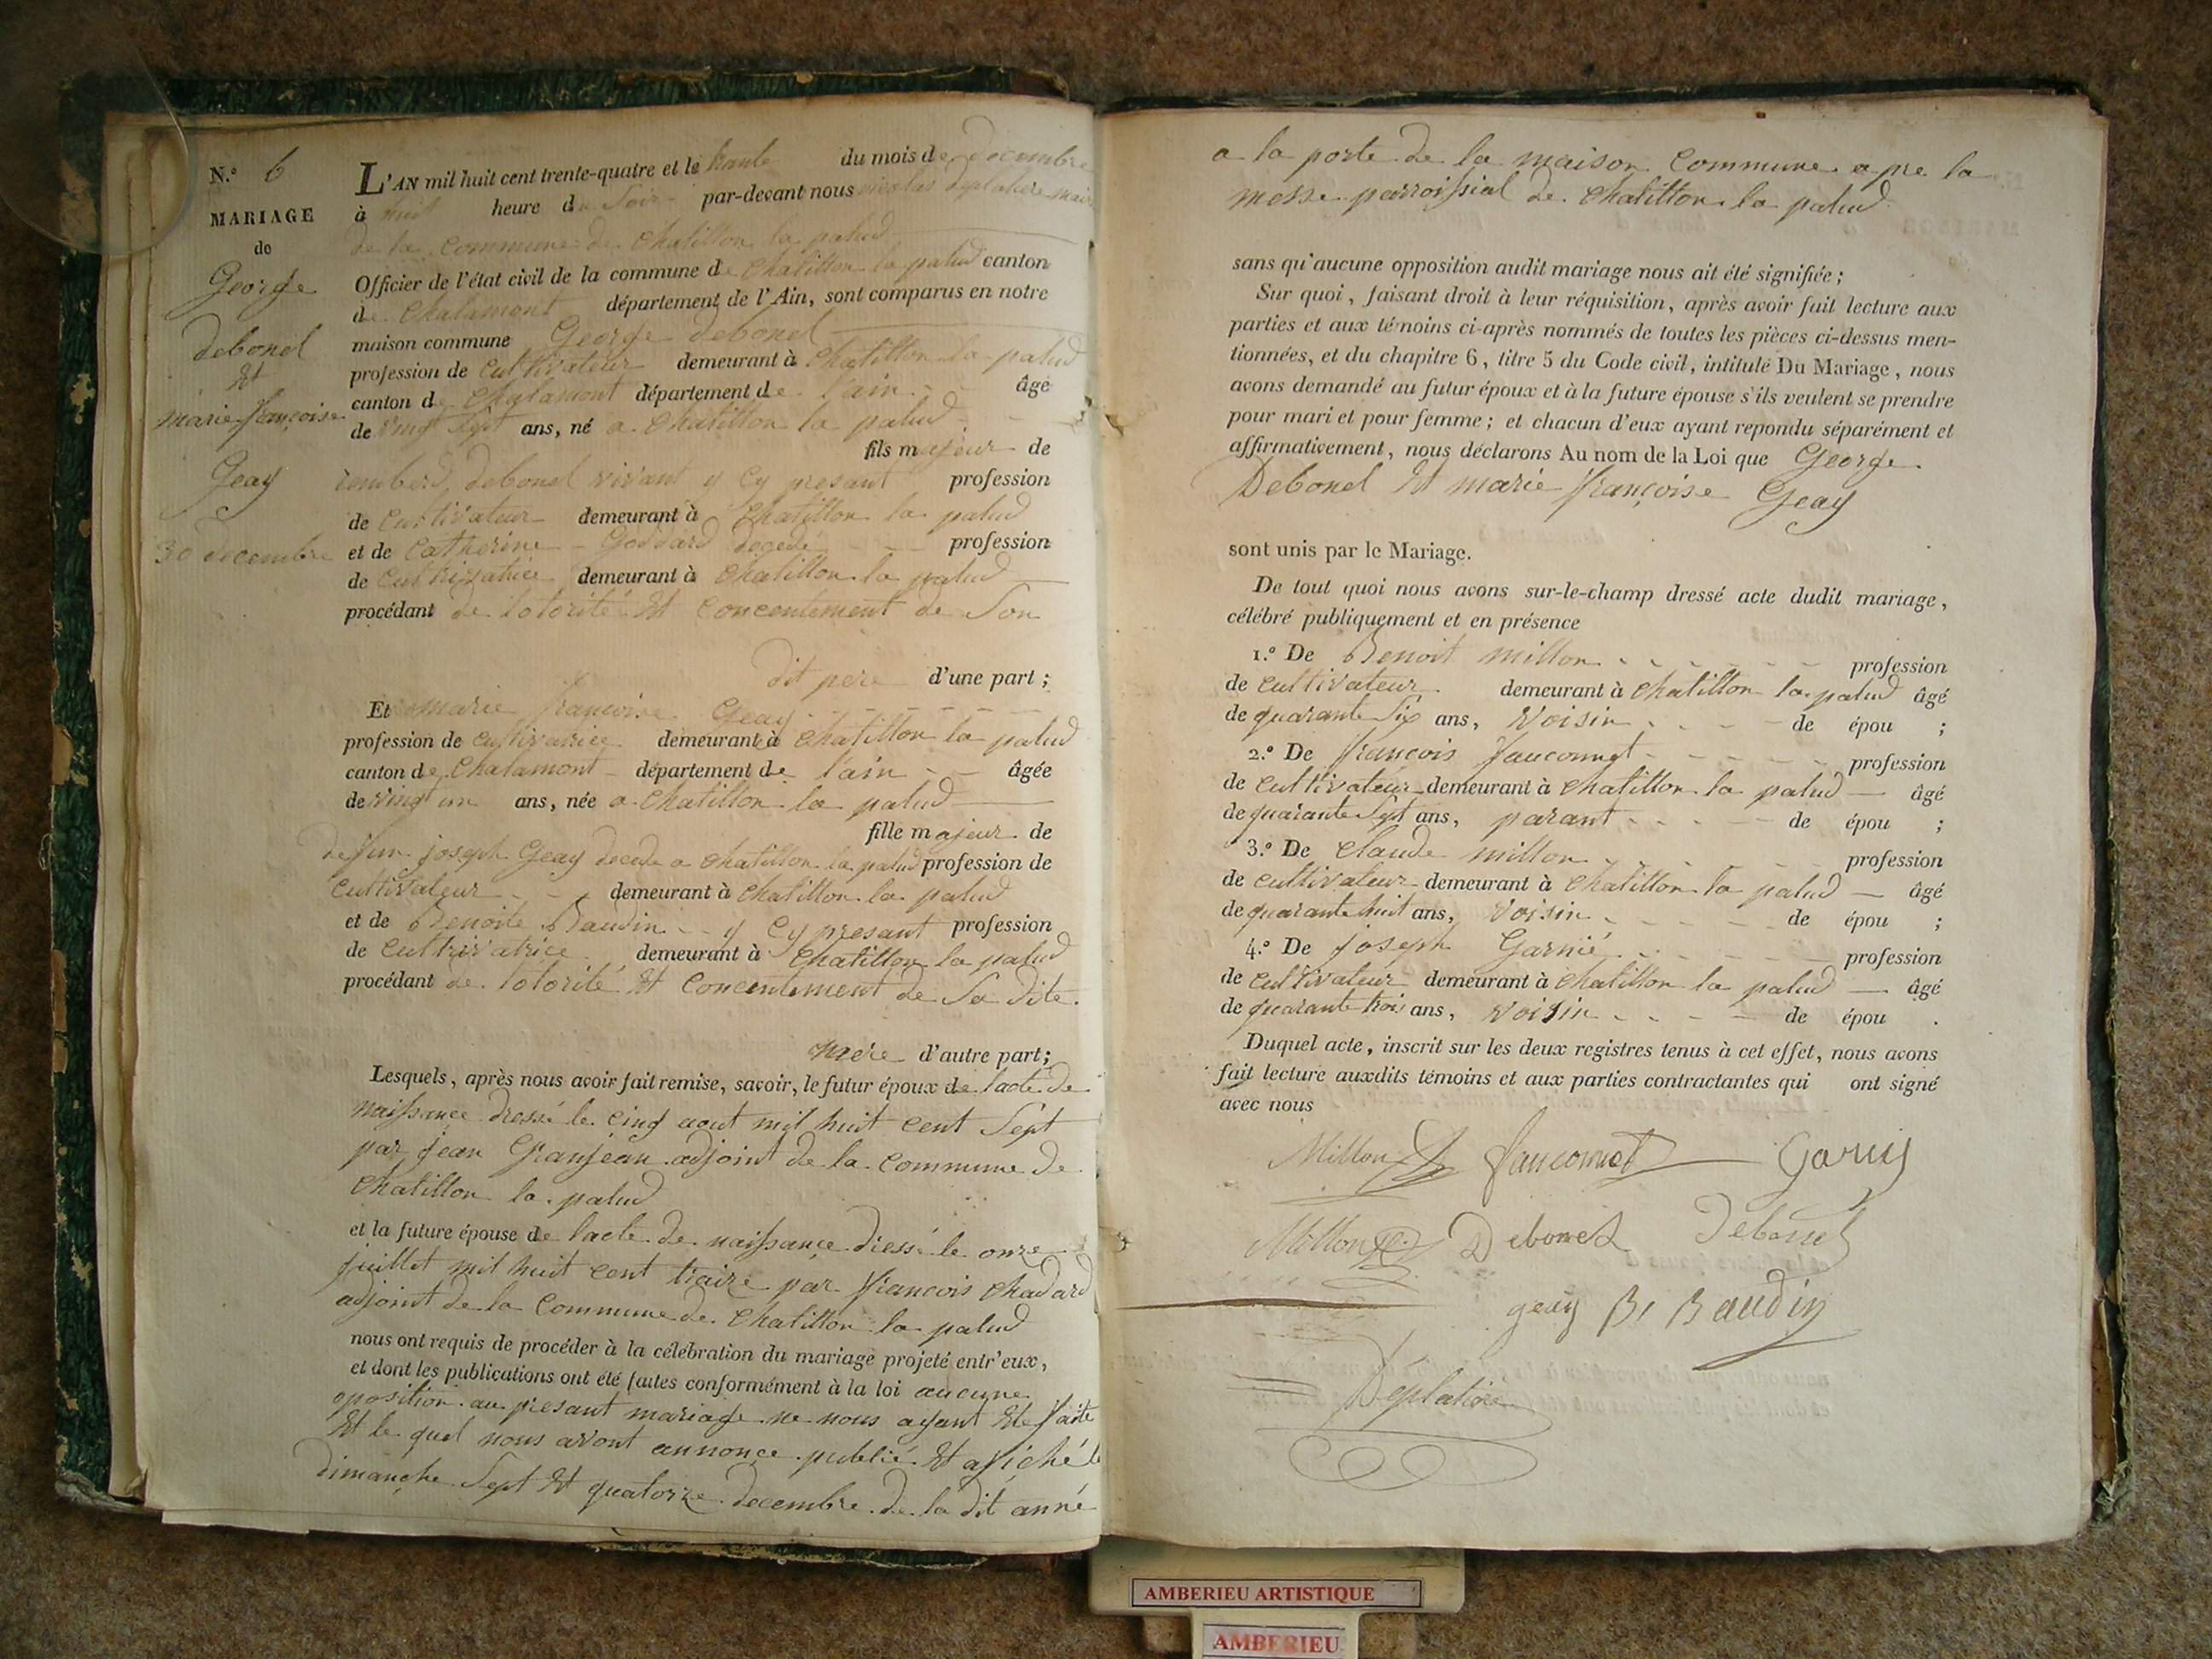 N.° 6
MARIAGE
de
George
debonel
Et
marie françoise
Geay
30 decembre
L'AN mil huit cent trente-quatre et le trante du mois de decembre
à huit heure du Soir par-devant nous nicolas deplatiere maire
de la Commune de Chatillon la palud
Officier de l'état civil de la commune de Chatillon la palud canton
de Chalamont département de l'Ain, sont comparus en notre
maison commune George debonel
profession de Cultivateur demeurant à Chatillon la palud
canton de Chalamont département de l'ain âgé
de vingt Sept ans, né a Chatillon la palud
fils majeur de
debonel vivant y Cy presant profession
de Cultivateur demeurant à Chatillon la palud
et de Catherine Goddard décédé profession
de Cultivatrice demeurant à Chatillon la palud
procédant de lotorité Et Concentement de Son
dit pere d'une part ;
Et marie françoise Geay
profession de Cultivatrice demeurant à Chatillon la palud
canton de Chalamont département de l'ain âgée
de vingt un ans, née a Chatillon la palud
fille majeur de
defun joseph Geay decede a Chatillon la palud profession de
Cultivateur demeurant à Chatillon la palud
et de Benoite Baudin y Cy presant profession
de Cultivatrice demeurant à Chatillon la palud
procédant de lotorité Et Concentement de Sa dite
mere d'autre part;
Lesquels, après nous avoir fait remise, savoir, le futur époux de lacte de
naissance dressé le cinq aout mil huit cent Sept
par jean Granjean adjoint de la Commune de
Chatillon la palud
et la future épouse de lacte de naissance dressé le onze
juillet mil huit cent traize par françois Chadard
adjoint de la Commune de Chatillon la palud
nous ont requis de procéder à la célébration du mariage projeté entr'eux,
et dont les publications ont été faites conformément à la loi aucune
oposition au presant mariage ne nous ayant Eté faite
Et le quel nous avont annonce publié Et afiché le
dimanche Sept Et quatorze decembre de la dit anné
a la porte de la maison Commune a pre la
messe parroissial de Chatillon la palud
sans qu'aucune opposition audit mariage nous ait été signifiée ;
Sur quoi, faisant droit à leur réquisition, après avoir fait lecture aux
parties et aux témoins ci-après nommés de toutes les pièces ci-dessus men-
tionnées, et du chapitre 6, titre 5 du Code civil, intitulé Du Mariage, nous
avons demandé au futur époux et à la future épouse s'ils veulent se prendre
pour mari et pour femme ; et chacun d'eux ayant repondu séparément et
affirmativement, nous déclarons Au nom de la Loi que George
Debonel Et marie françoise Geay
sont unis par le Mariage.
De tout quoi nous avons sur-le-champ dressé acte dudit mariage,
célébré publiquement et en présence
1.° De Benoit millon profession
de Cultivateur demeurant à Chatillon la palud âgé
de quarante Six ans, voisin de épou ;
2.° De françois fauconnet profession
de Cultivateur demeurant à Chatillon la palud âgé
de quarante Sept ans, parant de épou ;
3.° De Claude millon profession
de Cultivateur demeurant à Chatillon la palud âgé
de quarante huit ans, voisin de épou ;
4.° De joseph Garnié profession
de Cultivateur demeurant à Chatillon la palud âgé
de quarante trois ans, voisin de épou .
Duquel acte, inscrit sur les deux registres tenus à cet effet, nous avons
fait lecture auxdits témoins et aux parties contractantes qui ont signé
avec nous
Millon fauconnet
Millon Debonel Debonel
geay B. Baudin
Déplatiere
AMBERIEU ARTISTIQUE
AMBERIEU